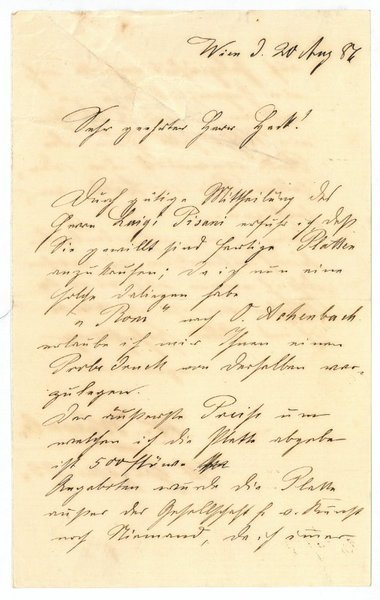 Wien d. 20 Aug 87
Sehr geehrter Herr Heck!
Durch gütige Mittheilung des
Herrn Luigi Pisani erfuhr ich daß
Sie gewillt sind fertige Platten
anzukaufen; da ich nun eine
solche daliegen habe
"Rom" nach O. Achenbach
erlaube ich mir Ihnen einen
Probedruck von derselben vor-
zulegen.
Der äußerste Preis um
welchen ich die Platte abgebe
ist 500
Angeboten wurde die Platte
außer der Gesellschaft f. v. Kunst
noch Niemand, da ich immer